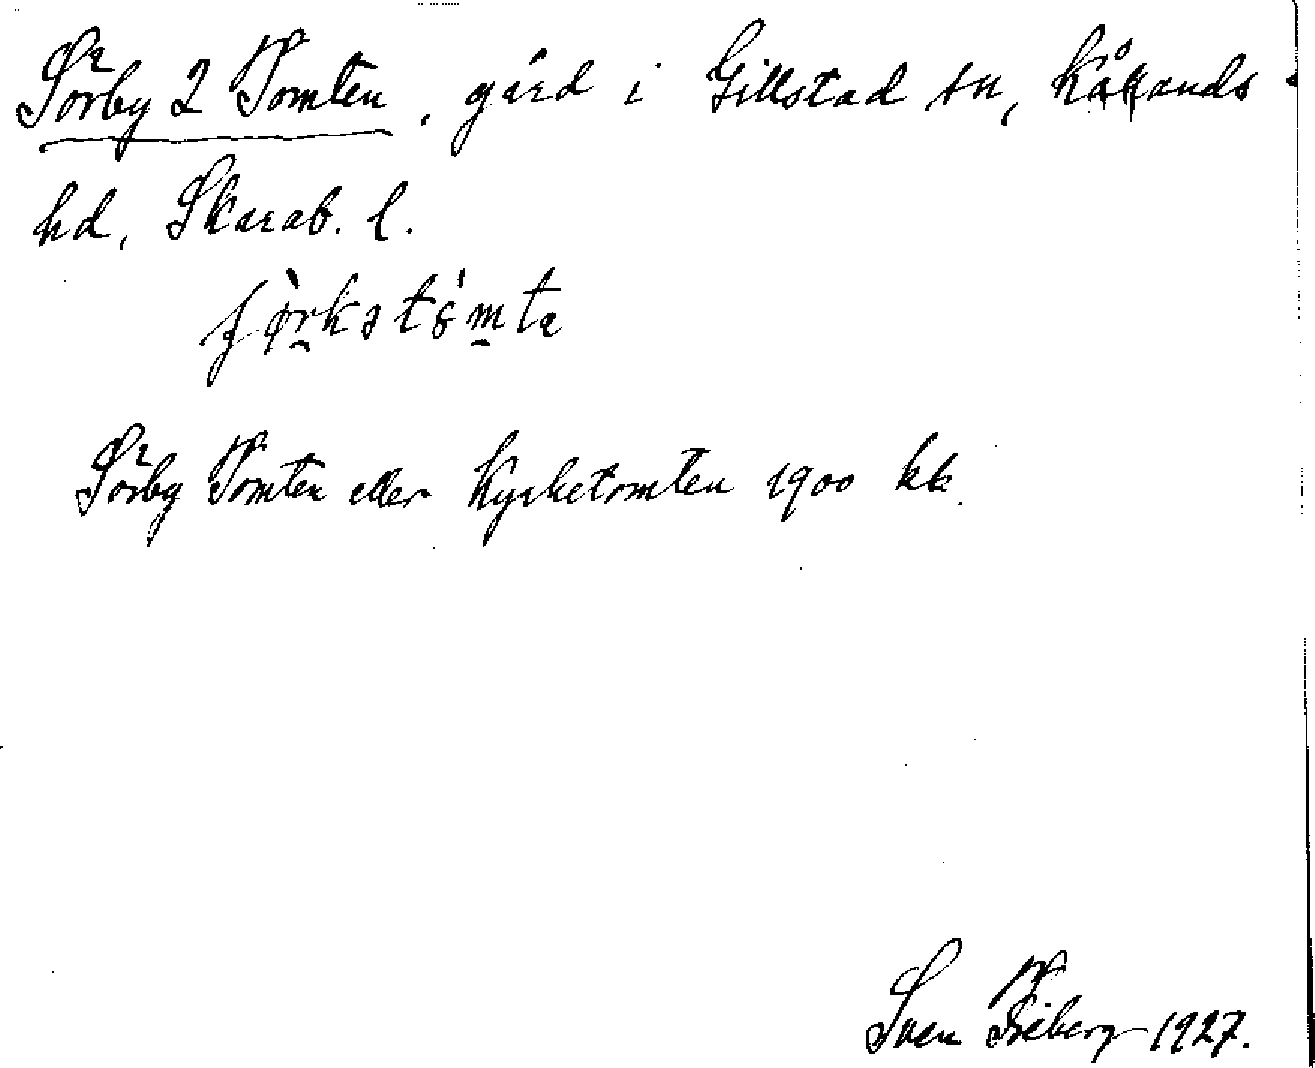 Sörby 2 Tomten, gård i Gillstad sn, Kållands
hd, Skarab. l.
Sörby Tomten eller Kyrketomten 1900 kk.
Sven Friberg 1927.